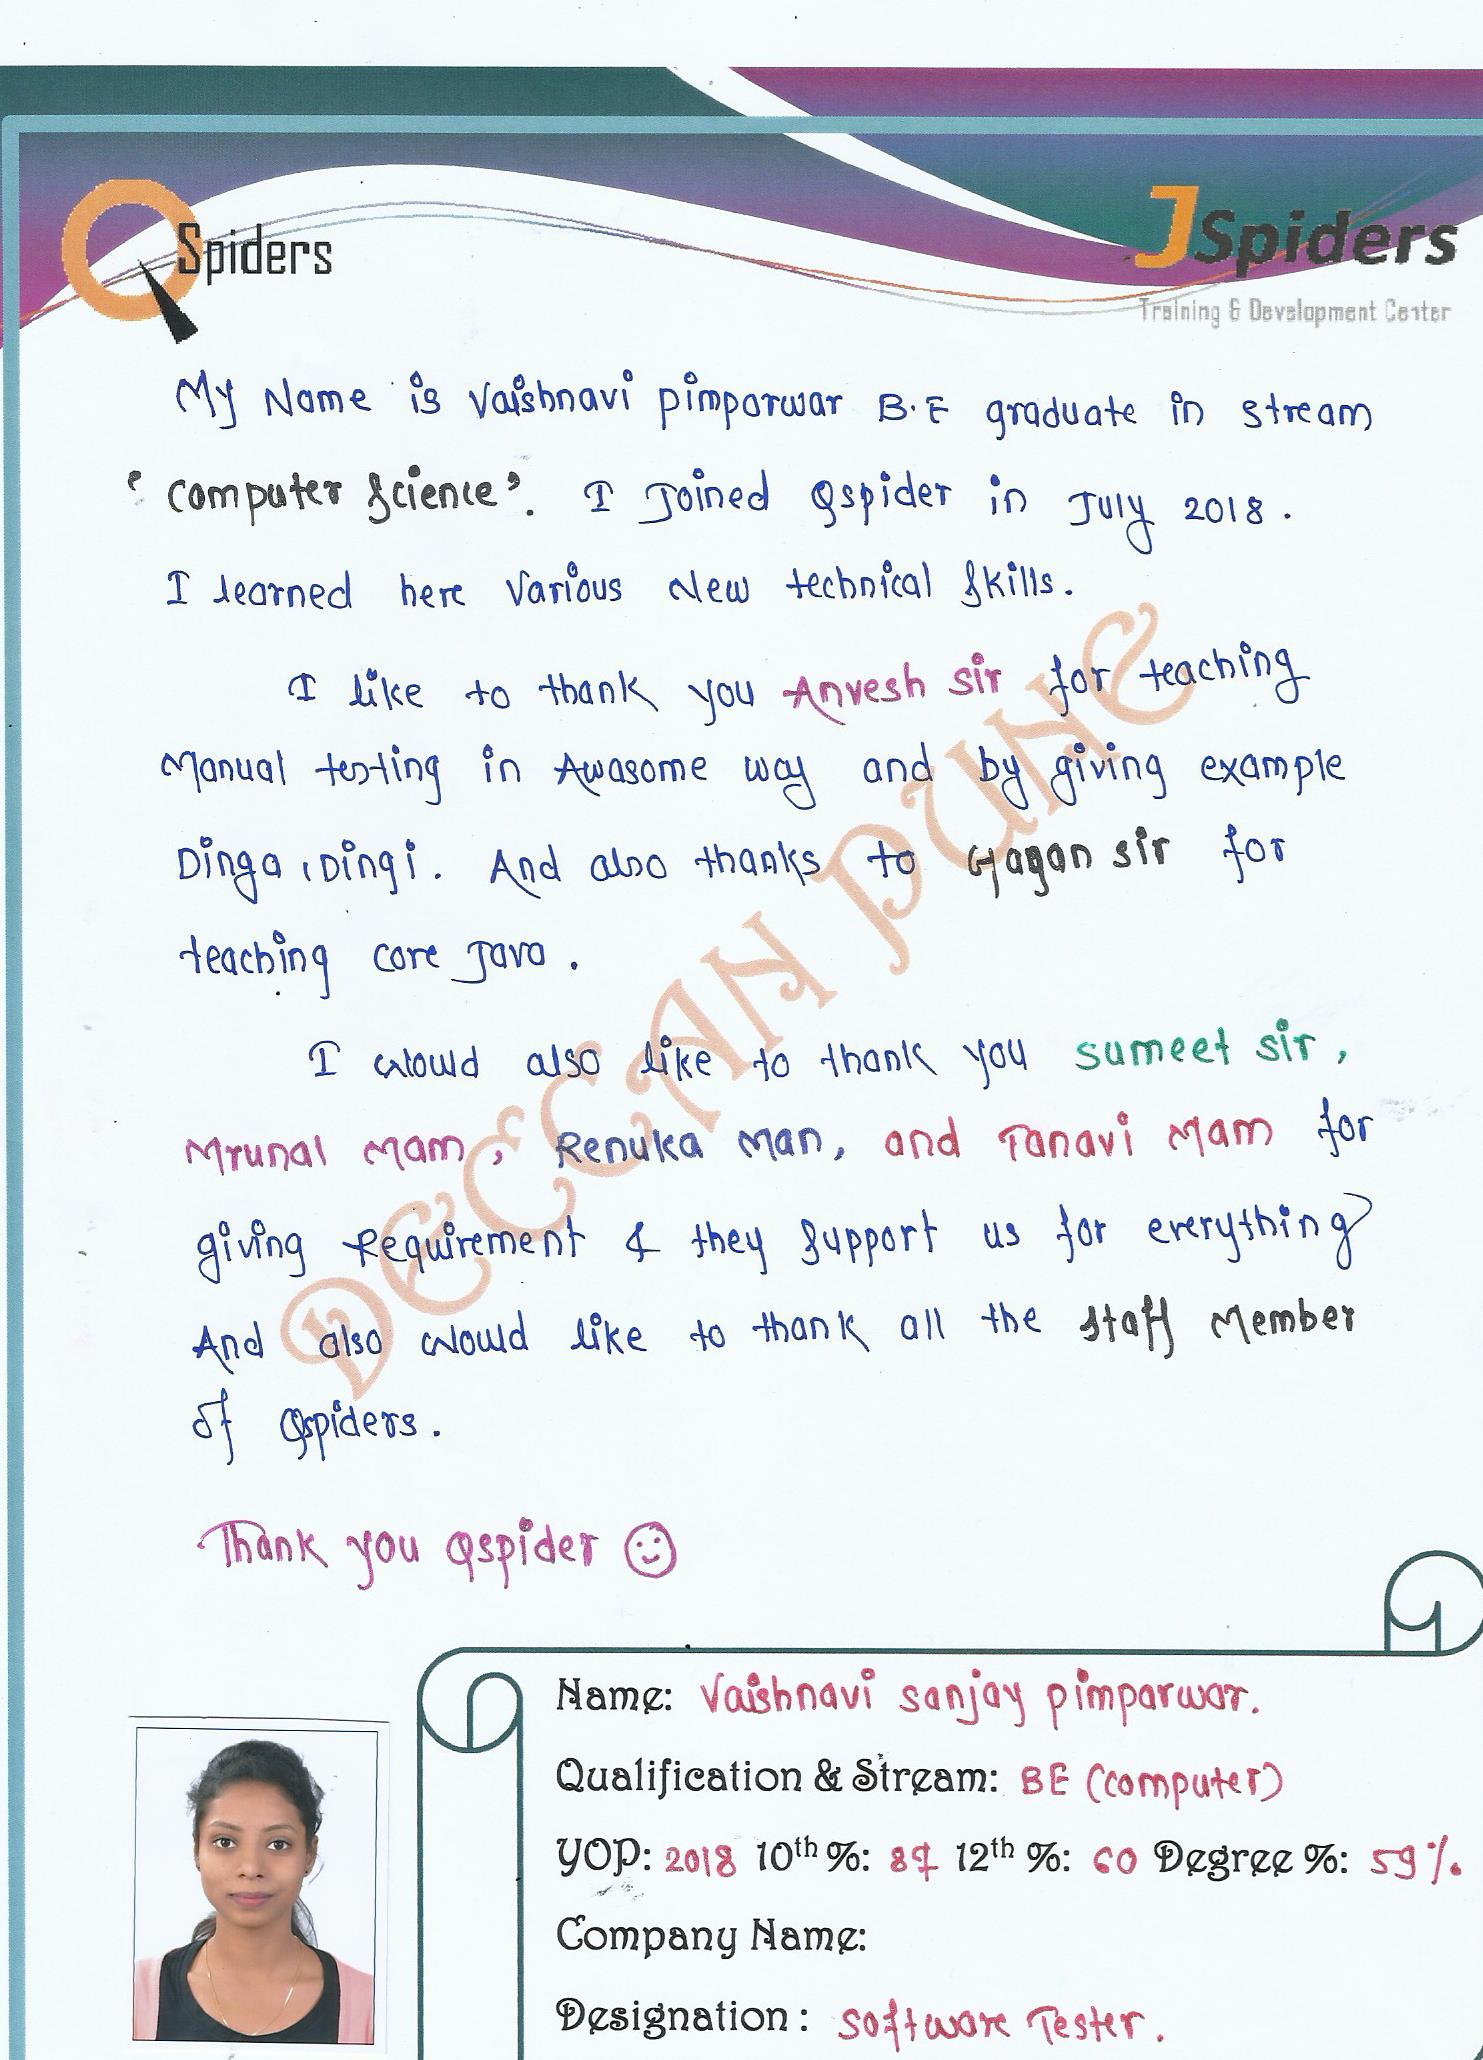 QSpiders
JSpiders
Training & Development Center
My Name is Vaishnavi pimparwar B.E graduate in stream
'Computer Science'. I Joined Qspider in July 2018.
I learned here Various New technical Skills.
I like to thank you Anvesh sir for teaching
Manual testing in Awasome way and by giving example
Dinga, Dingi. And also thanks to Gagan sir for
teaching core Java.
I would also like to thank you sumeet sir,
Mrunal Mam, Renuka Man, and Tanavi Mam for
giving Requirement & they Support us for everything
And also would like to thank all the Staff Member
of Qspiders.
Thank you Qspider
DECCAN PUNE
Name: Vaishnavi sanjay pimparwar.
Qualification & Stream: BE (computer)
YOP: 2018 10th %: 12th %: 60 Degree %: 59%.
Company Name:
Designation: Software Tester.